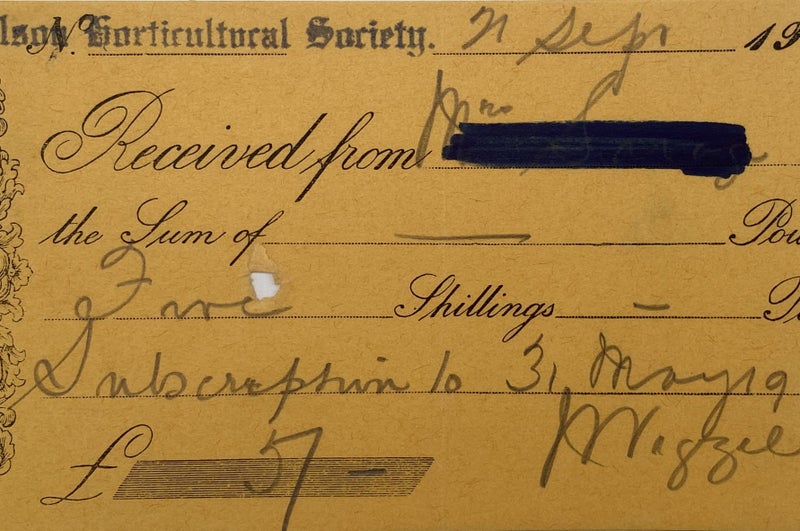 lson Horticultural Society. No. 21 Sept 19
Received from Mrs
the Sum of — Pou
Five Shillings — P
Subscription to 31 May 19
£ 5/-